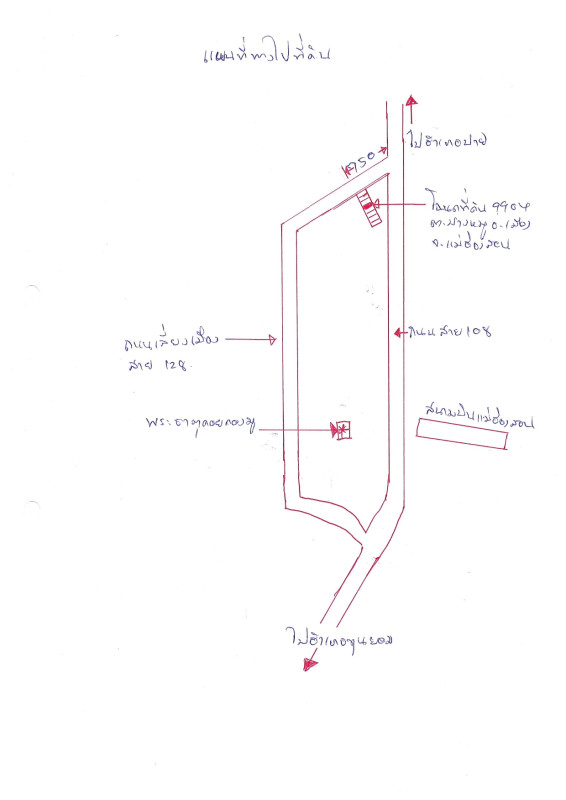 แผนที่ทางไปที่ดิน
ไปอำเภอปาย
750
โฉนดที่ดิน 9904
ต.ปางหมู อ.เมือง
จ.แม่ฮ่องสอน
ถนนสาย 108
ถนนเลี่ยงเมือง
สาย 128
พระธาตุดอยกองมู
สนามบินแม่ฮ่องสอน
ไปอำเภอขุนยวม